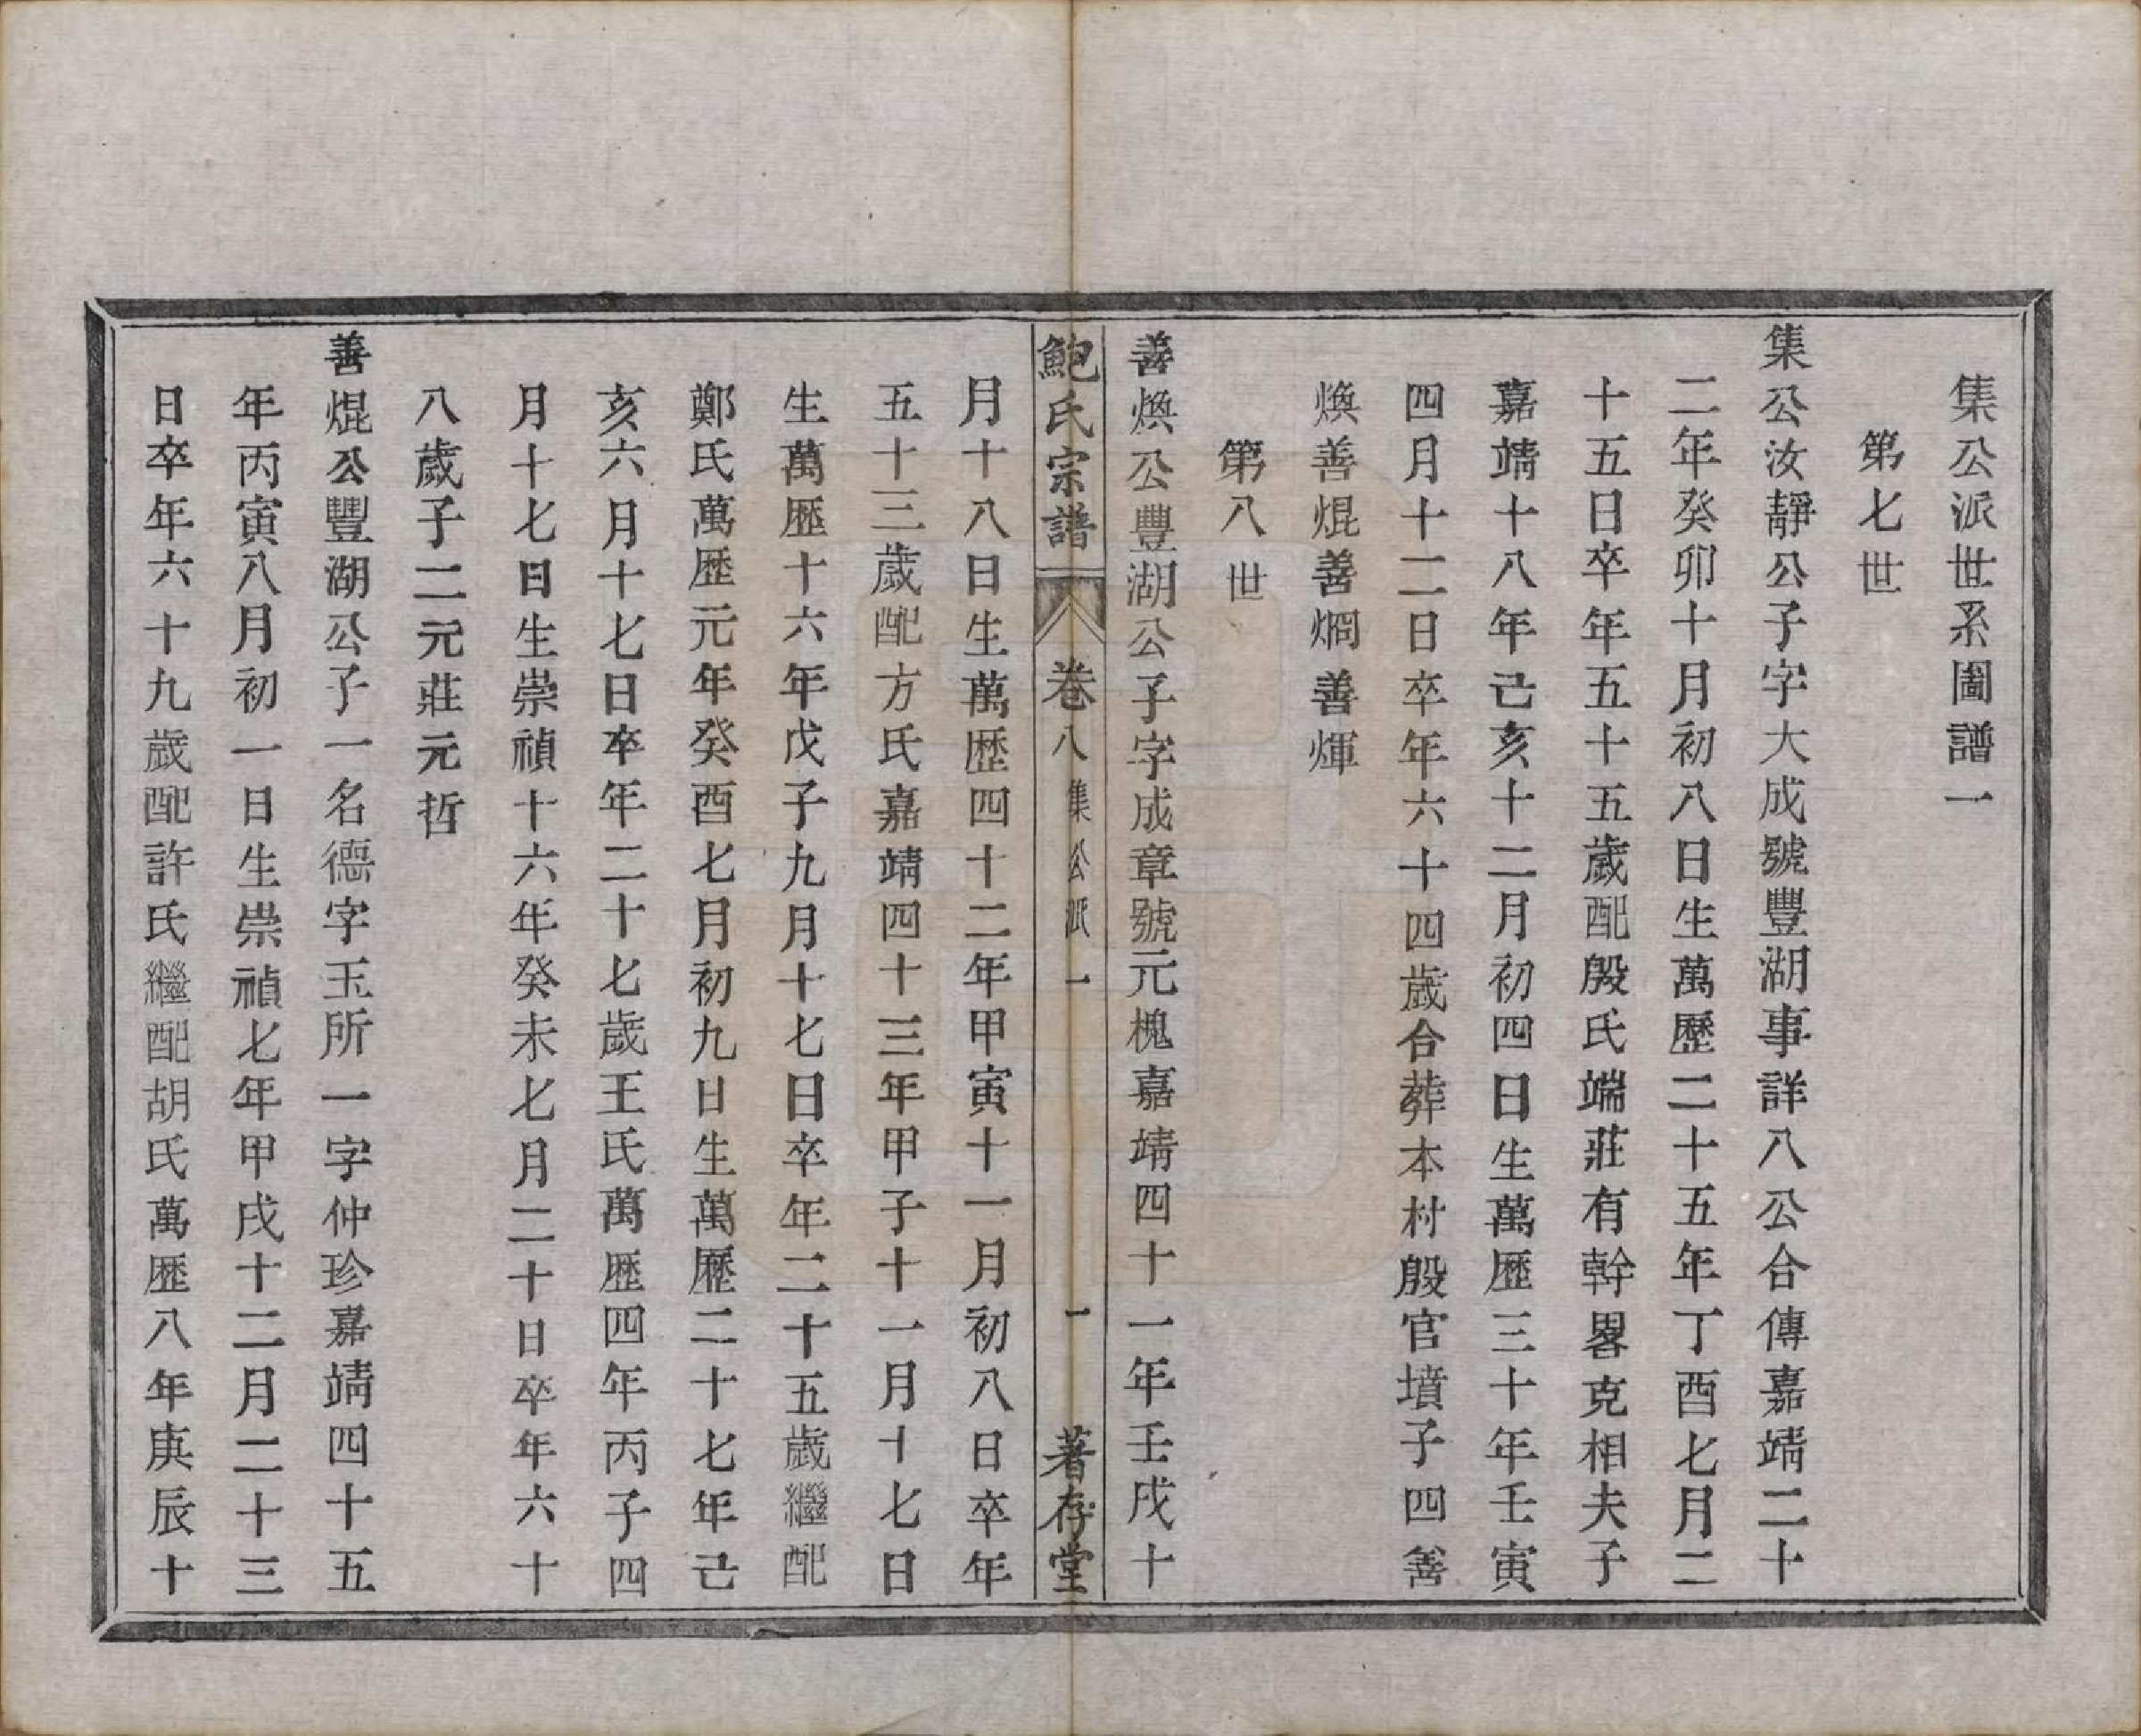 集公派世系圖譜一
第七世
集公汝靜公子字大成號豐湖事詳八公合傳嘉靖二十
二年癸卯十月初八日生萬歷二十五年丁酉七月二
十五日卒年五十五歲配殷氏端莊有幹畧克相夫子
嘉靖十八年己亥十二月初四日生萬歷三十年壬寅
四月十二日卒年六十四歲合葬本村殷官墳子四善
煥善焜善烱善煇
第八世
善煥公豐湖公子字成章號元槐嘉靖四十一年壬戌十
鮑氏宗譜 卷八 集公派一 一 著存堂
月十八日生萬歷四十二年甲寅十一月初八日卒年
五十三歲配方氏嘉靖四十三年甲子十一月十七日
生萬歷十六年戊子九月十七日卒年二十五歲繼配
鄭氏萬歷元年癸酉七月初九日生萬歷二十七年己
亥六月十七日卒年二十七歲王氏萬歷四年丙子四
月十七日生崇禎十六年癸未七月二十日卒年六十
八歲子二元莊元哲
善焜公豐湖公子一名德字玉所一字仲珍嘉靖四十五
年丙寅八月初一日生崇禎七年甲戌十二月二十三
日卒年六十九歲配許氏繼配胡氏萬歷八年庚辰十